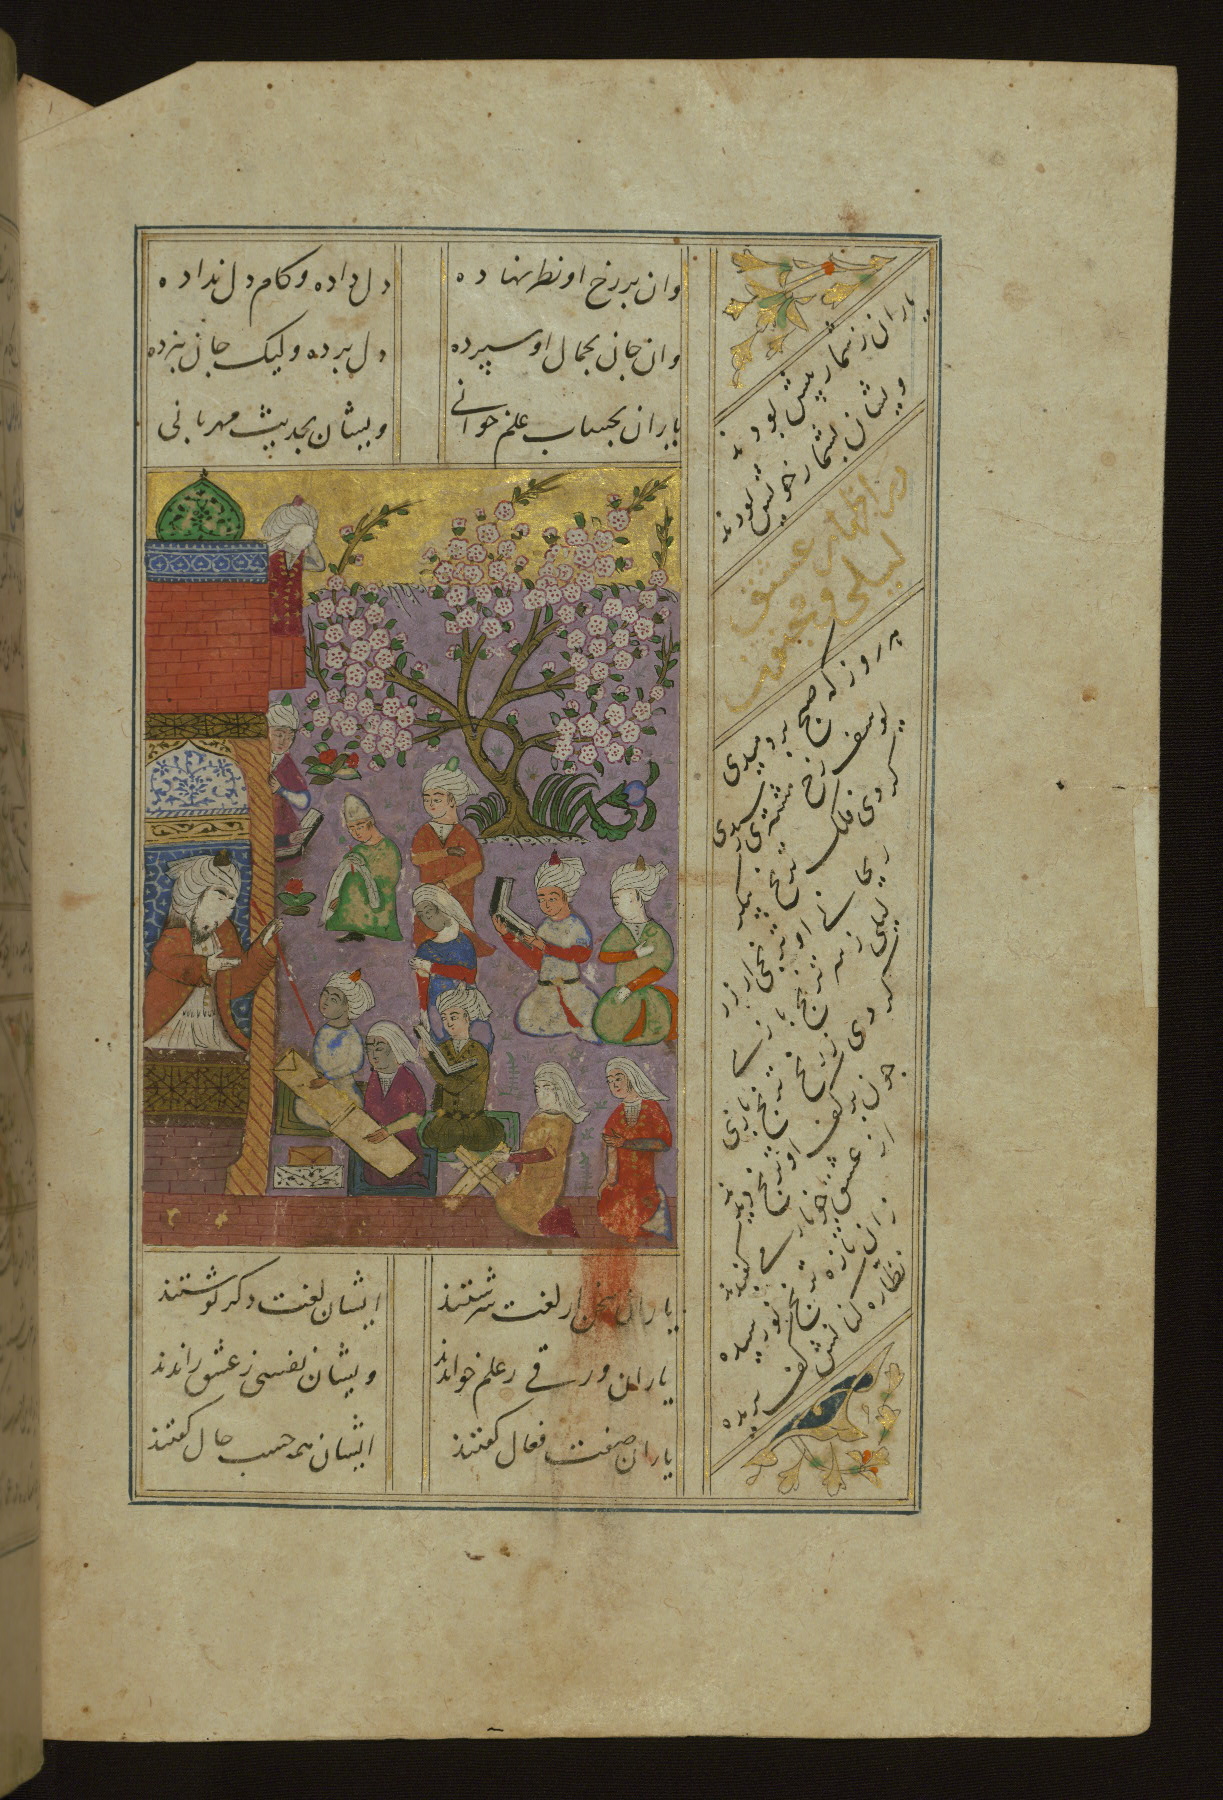 وان بر رخ او نظر نهاده
دل داده و کام دل نداده
وان جان بجمال او سپرده
دل برده ولیک جان نبرده
یاران بحساب علم خوانی
ویشان بحدیث مهربانی
یاران سخن از لغت سرشتند
ایشان لغت دکر نوشتند
یاران ورقی ز علم خواندند
ویشان نفسی ز عشق راندند
یاران صفت فعال کفتند
ایشان همه حسب حال کفتند
یاران ز شمار پیش بودند
ویشان بشمار خویش بودند
در اظهار عشق
لیلی و مجنون
هر روز که صبح بردمیدی
یوسف رخ مشرقی رسیدی
کردی فلک ترنج پیکر
ریحانی او ترنجی از زر
لیلی ز سر ترنج بازی
کردی ز زنخ ترنج سازی
چون بر کف او ترنج دیدند
از عشق چو نار می کفیدند
زان تازه ترنج نو رسیده
نظاره کنانش کف بریده